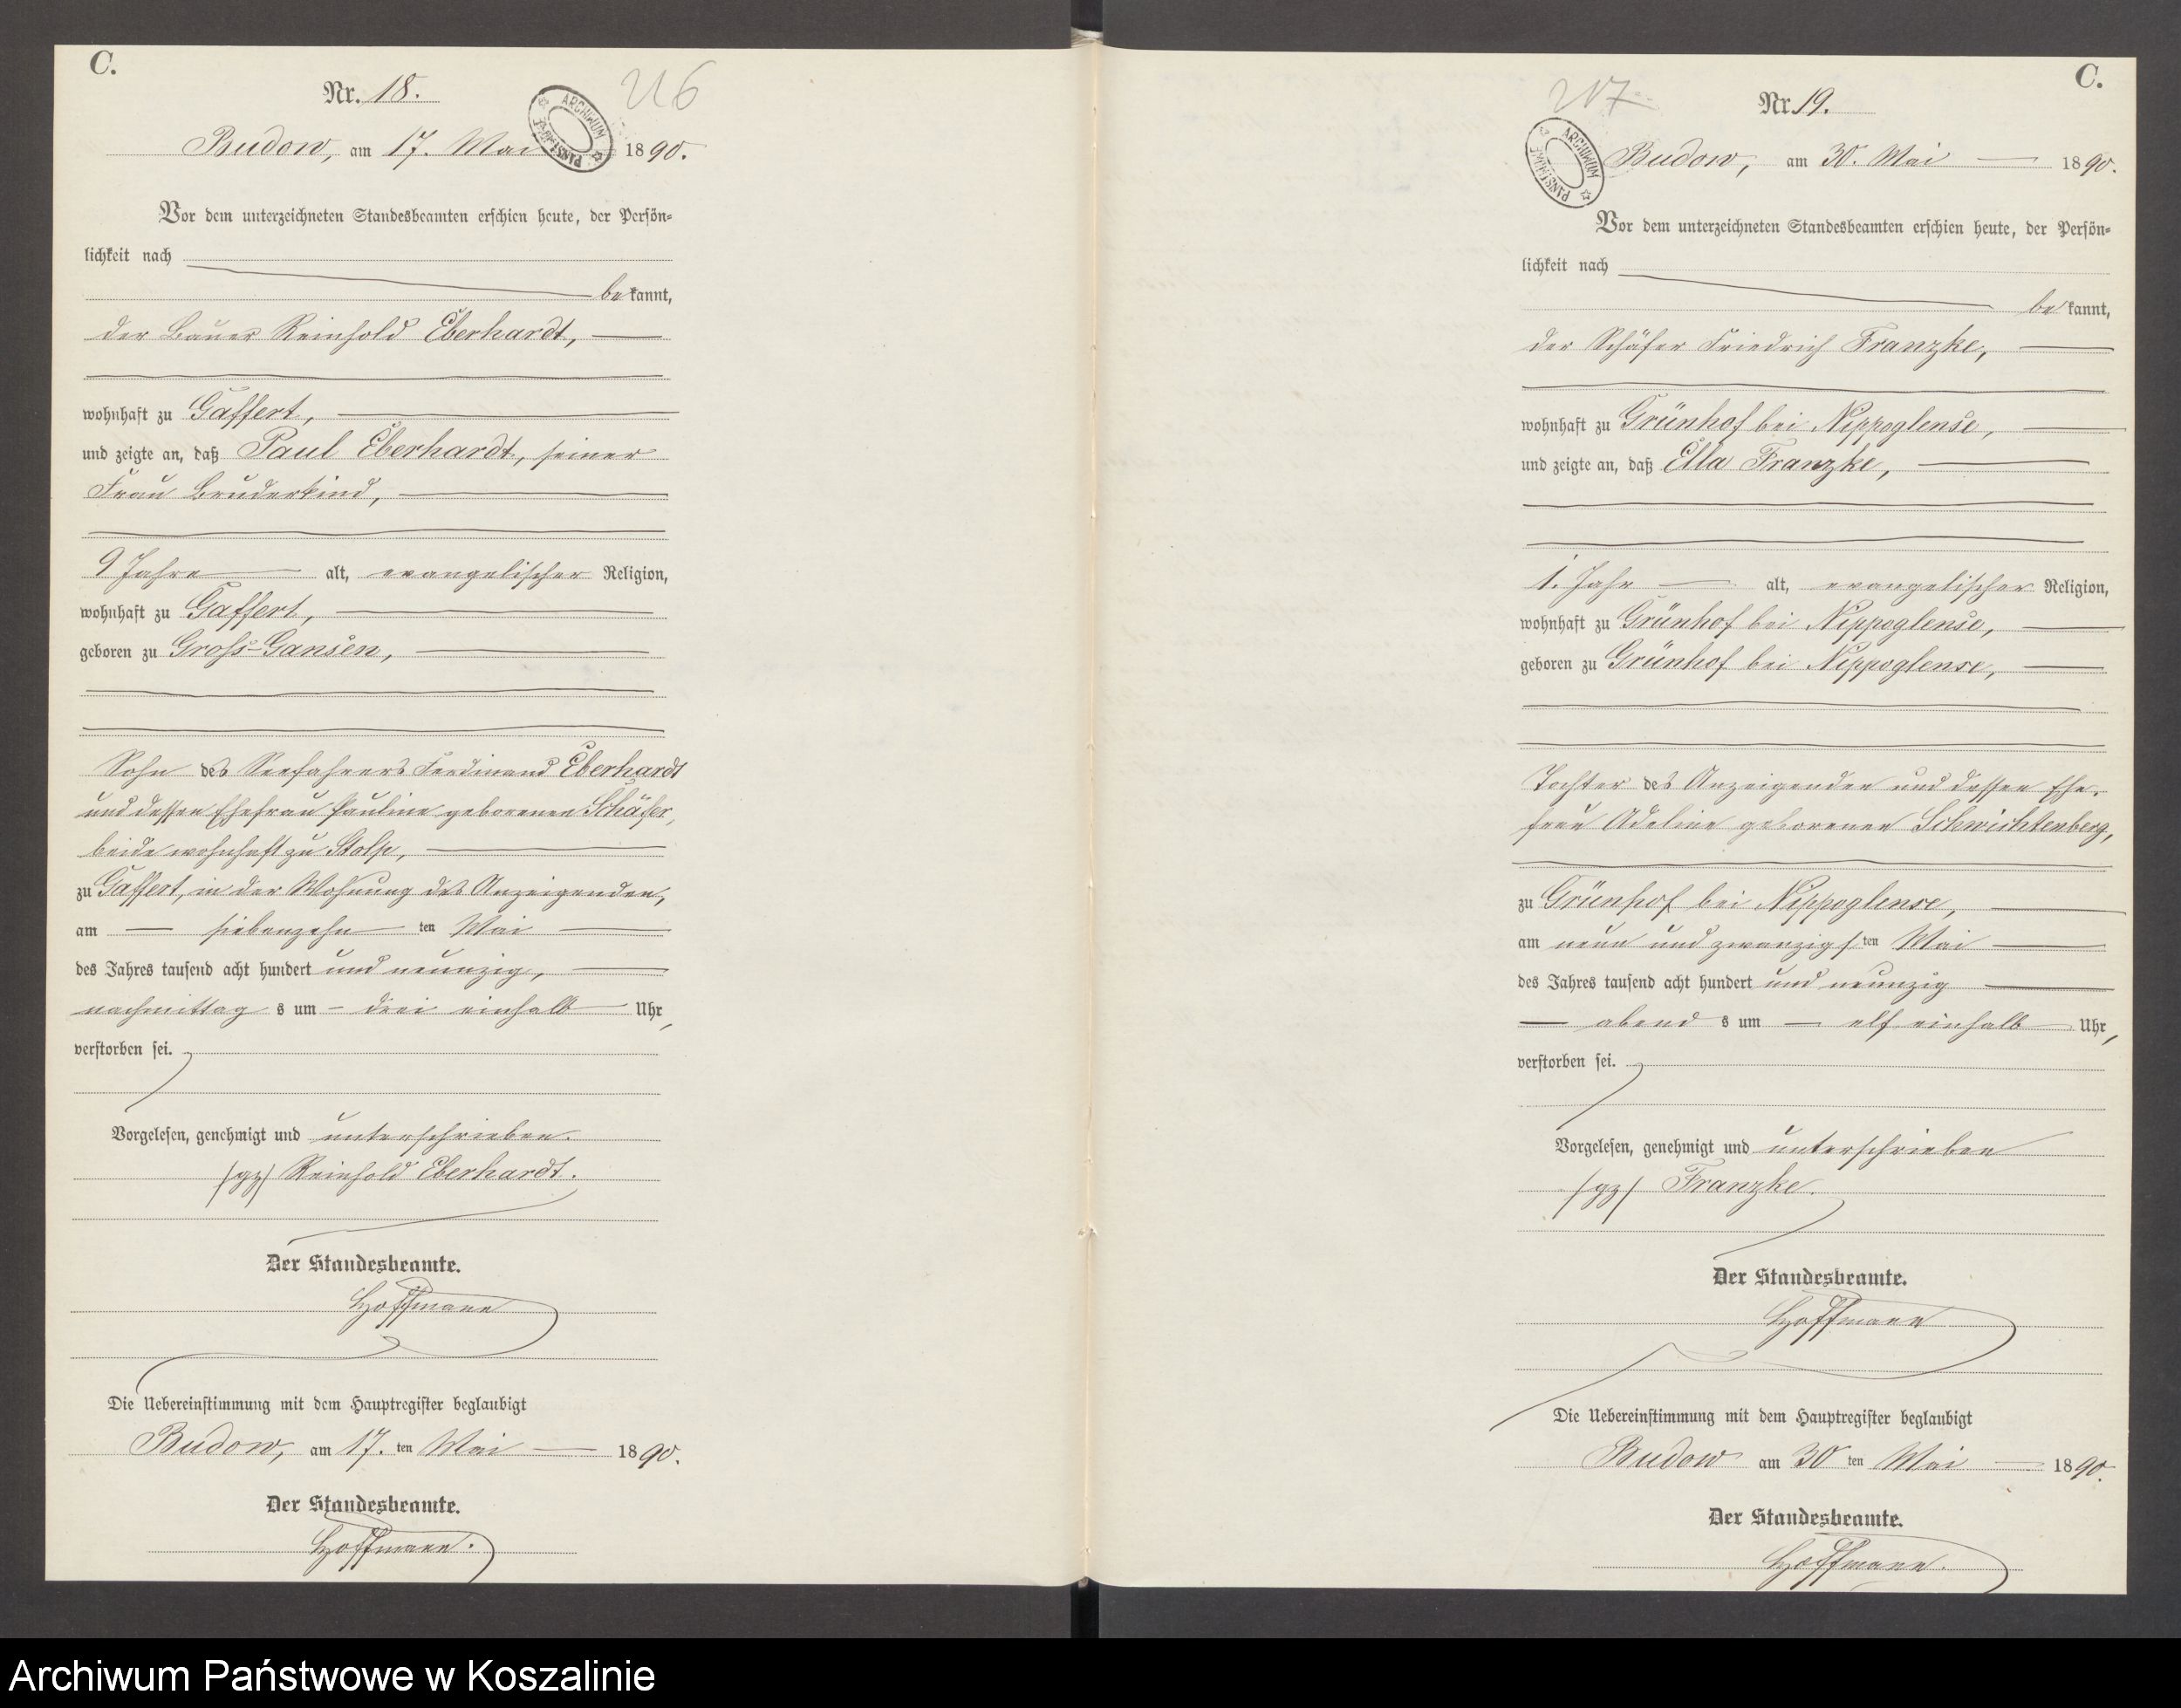 C.
Nr. 18.
216
ARCHIWUM PAŃSTWOWE
Budow, am 17. Mai 1890.
Vor dem unterzeichneten Standesbeamten erschien heute, der Persön=
lichkeit nach
bekannt,
der Bauer Reinhold Eberhardt,
wohnhaft zu Gaffert,
und zeigte an, daß Paul Eberhardt, seiner
Frau Bruderkind,
9 Jahre alt, evangelischer Religion,
wohnhaft zu Gaffert,
geboren zu Gross-Gansen,
Sohn des Seefahrers Ferdinand Eberhardt
und dessen Ehefrau Pauline geborenen Schäfer,
beide wohnhaft zu Stolp,
zu Gaffert, in der Wohnung des Anzeigenden,
am siebenzehnten Mai
des Jahres tausend acht hundert und neunzig,
nachmittags um drei einhalb Uhr,
verstorben sei.
Vorgelesen, genehmigt und unterschrieben.
(gz) Reinhold Eberhardt.
Der Standesbeamte.
Hoffmann
Die Uebereinstimmung mit dem Hauptregister beglaubigt
Budow, am 17. ten Mai 1890.
Der Standesbeamte.
Hoffmann.
C.
217
Nr. 19.
ARCHIWUM PAŃSTWOWE
Budow, am 30. Mai 1890.
Vor dem unterzeichneten Standesbeamten erschien heute, der Persön=
lichkeit nach
bekannt,
der Schäfer Friedrich Franzke,
wohnhaft zu Grünhof bei Nippoglense,
und zeigte an, daß Ella Franzke,
1. Jahr alt, evangelischer Religion,
wohnhaft zu Grünhof bei Nippoglense,
geboren zu Grünhof bei Nippoglense,
Tochter des Anzeigenden und dessen Ehe-
frau Adeline geborenen Schwichtenberg,
zu Grünhof bei Nippoglense,
am neun und zwanzigsten Mai
des Jahres tausend acht hundert und neunzig
abends um elf einhalb Uhr,
verstorben sei.
Vorgelesen, genehmigt und unterschrieben
(gz) Franzke.
Der Standesbeamte.
Hoffmann
Die Uebereinstimmung mit dem Hauptregister beglaubigt
Budow am 30 ten Mai 1890.
Der Standesbeamte.
Hoffmann.
Archiwum Państwowe w Koszalinie